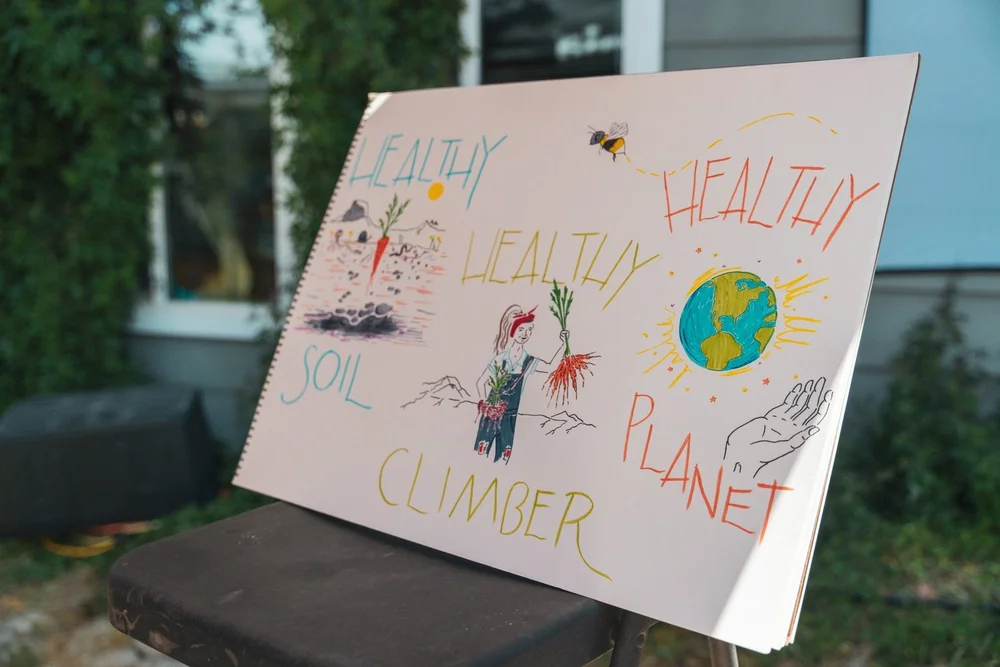 HEALTHY
SOIL
HEALTHY
CLIMBER
HEALTHY
PLANET